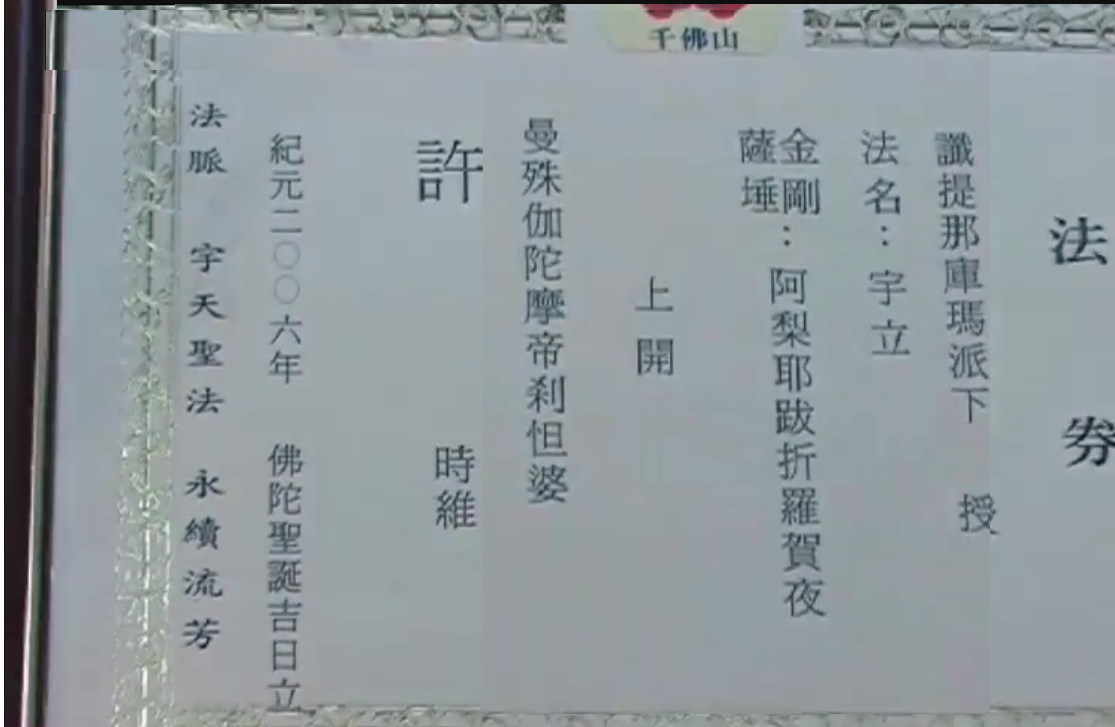 千佛山
法券
讖提那庫瑪派下 授
法名：宇立
金剛薩埵：阿梨耶跋折羅賀夜
上開
曼殊伽陀摩帝剎怛婆
許 時維
紀元二〇〇六年 佛陀聖誕吉日立
法脈 宇天聖法 永續流芳